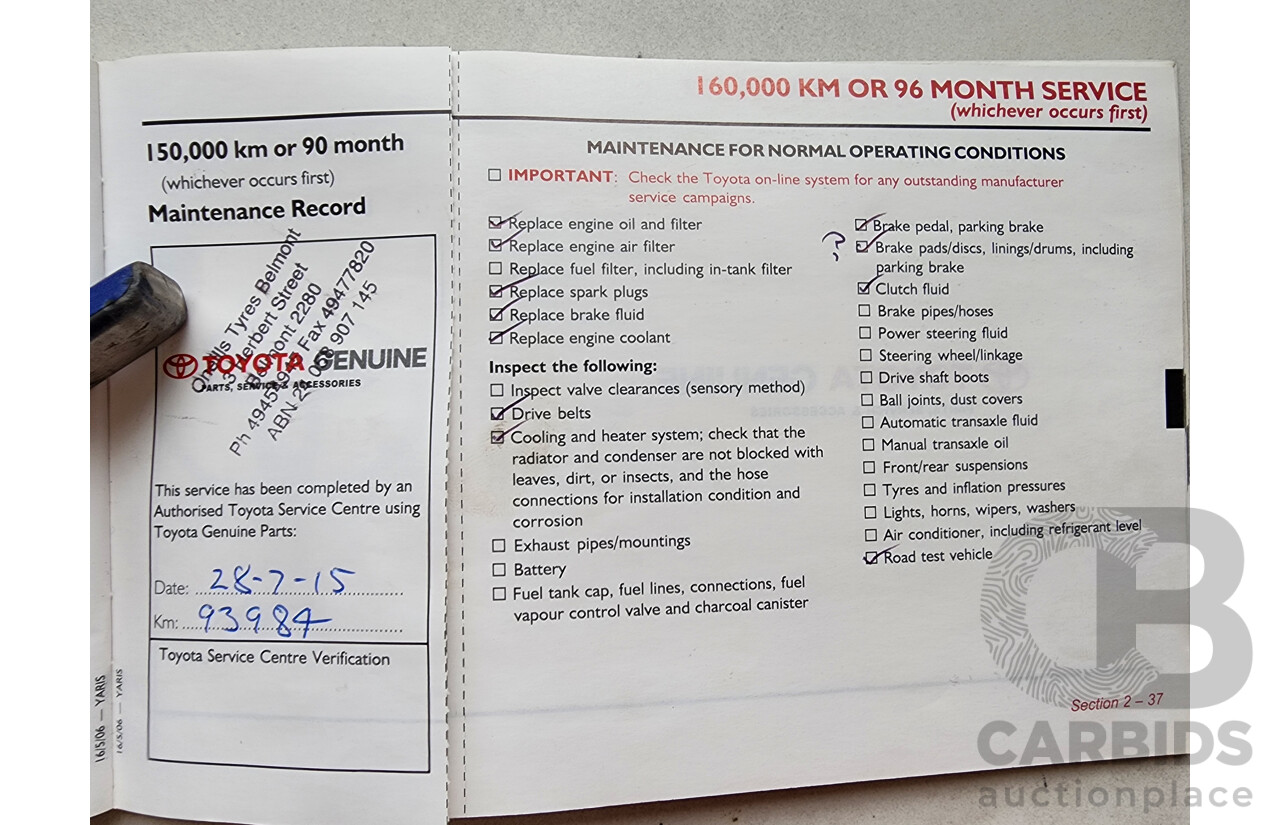 150,000 km or 90 month
(whichever occurs first)
Maintenance Record
Tyres Belmont
Herbert Street
Belmont 2280
Fax 49477820
ABN
907 145
TOYOTA GENUINE
PARTS, SERVICE & ACCESSORIES
This service has been completed by an
Authorised Toyota Service Centre using
Toyota Genuine Parts:
Date: 28-7-15
Km: 93984
Toyota Service Centre Verification
16/5/06 — YARIS
16/5/06 — YARIS
160,000 KM OR 96 MONTH SERVICE
(whichever occurs first)
MAINTENANCE FOR NORMAL OPERATING CONDITIONS
IMPORTANT: Check the Toyota on-line system for any outstanding manufacturer
service campaigns.
Replace engine oil and filter
Replace engine air filter
Replace fuel filter, including in-tank filter
Replace spark plugs
Replace brake fluid
Replace engine coolant
Inspect the following:
Inspect valve clearances (sensory method)
Drive belts
Cooling and heater system; check that the
radiator and condenser are not blocked with
leaves, dirt, or insects, and the hose
connections for installation condition and
corrosion
Exhaust pipes/mountings
Battery
Fuel tank cap, fuel lines, connections, fuel
vapour control valve and charcoal canister
Brake pedal, parking brake
? Brake pads/discs, linings/drums, including
parking brake
Clutch fluid
Brake pipes/hoses
Power steering fluid
Steering wheel/linkage
Drive shaft boots
Ball joints, dust covers
Automatic transaxle fluid
Manual transaxle oil
Front/rear suspensions
Tyres and inflation pressures
Lights, horns, wipers, washers
Air conditioner, including refrigerant level
Road test vehicle
Section 2 – 37
CB
CARBIDS
auctionplace